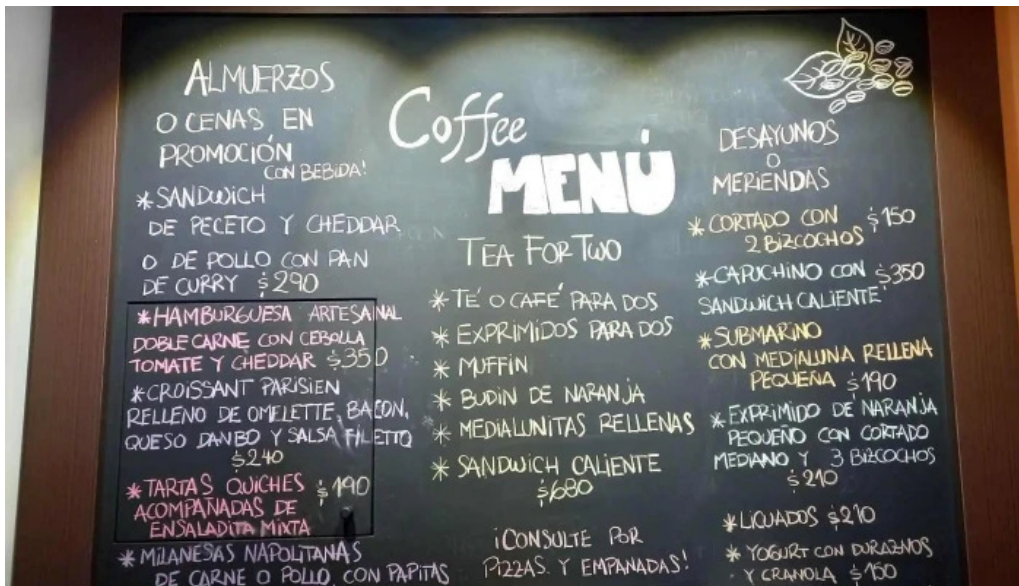 ALMUERZOS
O CENAS EN
PROMOCIÓN
CON BEBIDA!
*SANDWICH
DE PECETO Y CHEDDAR
O DE POLLO CON PAN
DE CURRY $290
*HAMBURGUESA ARTESANAL
DOBLE CARNE CON CEBOLLA
TOMATE Y CHEDDAR $350
*CROISSANT PARISIEN
RELLENO DE OMELETTE, BACON,
QUESO DANBO Y SALSA FILETTO
$240
*TARTAS QUICHES $190
ACOMPAÑADAS DE
ENSALADITA MIXTA
*MILANESAS NAPOLITANAS
DE CARNE O POLLO CON PAPITAS
Coffee
MENÚ
TEA FOR TWO
*TÉ O CAFÉ PARA DOS
*EXPRIMIDOS PARA DOS
*MUFFIN
*BUDIN DE NARANJA
*MEDIALUNITAS RELLENAS
*SANDWICH CALIENTE
$680
¡CONSULTE POR
PIZZAS Y EMPANADAS!
DESAYUNOS
O
MERIENDAS
*CORTADO CON $150
2 BIZCOCHOS
*CAPUCHINO CON $350
SANDWICH CALIENTE
*SUBMARINO
CON MEDIALUNA RELLENA
PEQUEÑA $190
*EXPRIMIDO DE NARANJA
PEQUEÑO CON CORTADO
MEDIANO Y 3 BIZCOCHOS
$210
*LICUADOS $210
*YOGURT CON DURAZNOS
Y GRANOLA $150